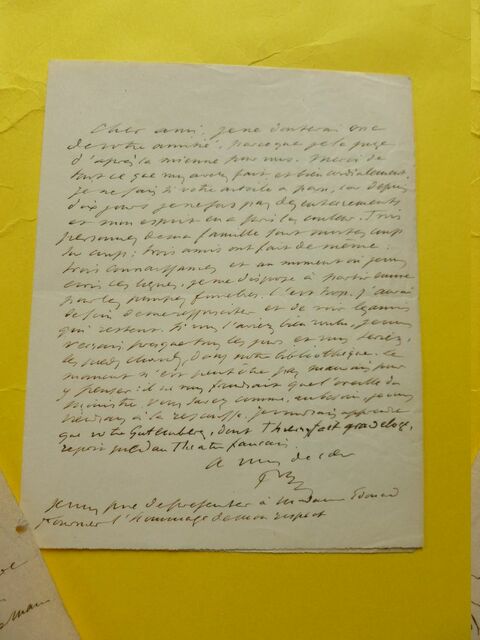 Cher ami, je ne douterai onc
de votre amitié, parce que je la juge
d'après la mienne pour vous. Merci de
tout ce que vous avez fait, et bien cordialement.
Je ne sais si votre article a paru, car depuis
dix jours je ne sors pas des enterrements,
et mon esprit en a pris la couleur. Trois
personnes de ma famille sont mortes coup
sur coup; trois amis ont fait de même;
trois connaissances et au moment où je vous
écris ces lignes, je me dispose à partir encore
pour les pompes funèbres. C'est trop. J'aurai
besoin de me reposer et de voir les amis
qui restent. Si vous l'aviez bien voulu, je vous
verrais presque tous les jours et vous seriez,
les pieds chauds, dans notre bibliothèque. Le
moment n'est peut être pas mauvais pour
y penser: il ne vous faudrait que l'oreille du
Ministre. Vous savez comme, au besoin, je vous
viendrais à la rescousse. Je voudrais apprendre
que votre Gutenberg, dont Thierry fait grand éloge,
reçoit au Théâtre français.
A vous de cœur
Je vous prie de présenter à Madame Edouard
Fournier l'hommage de mon respect